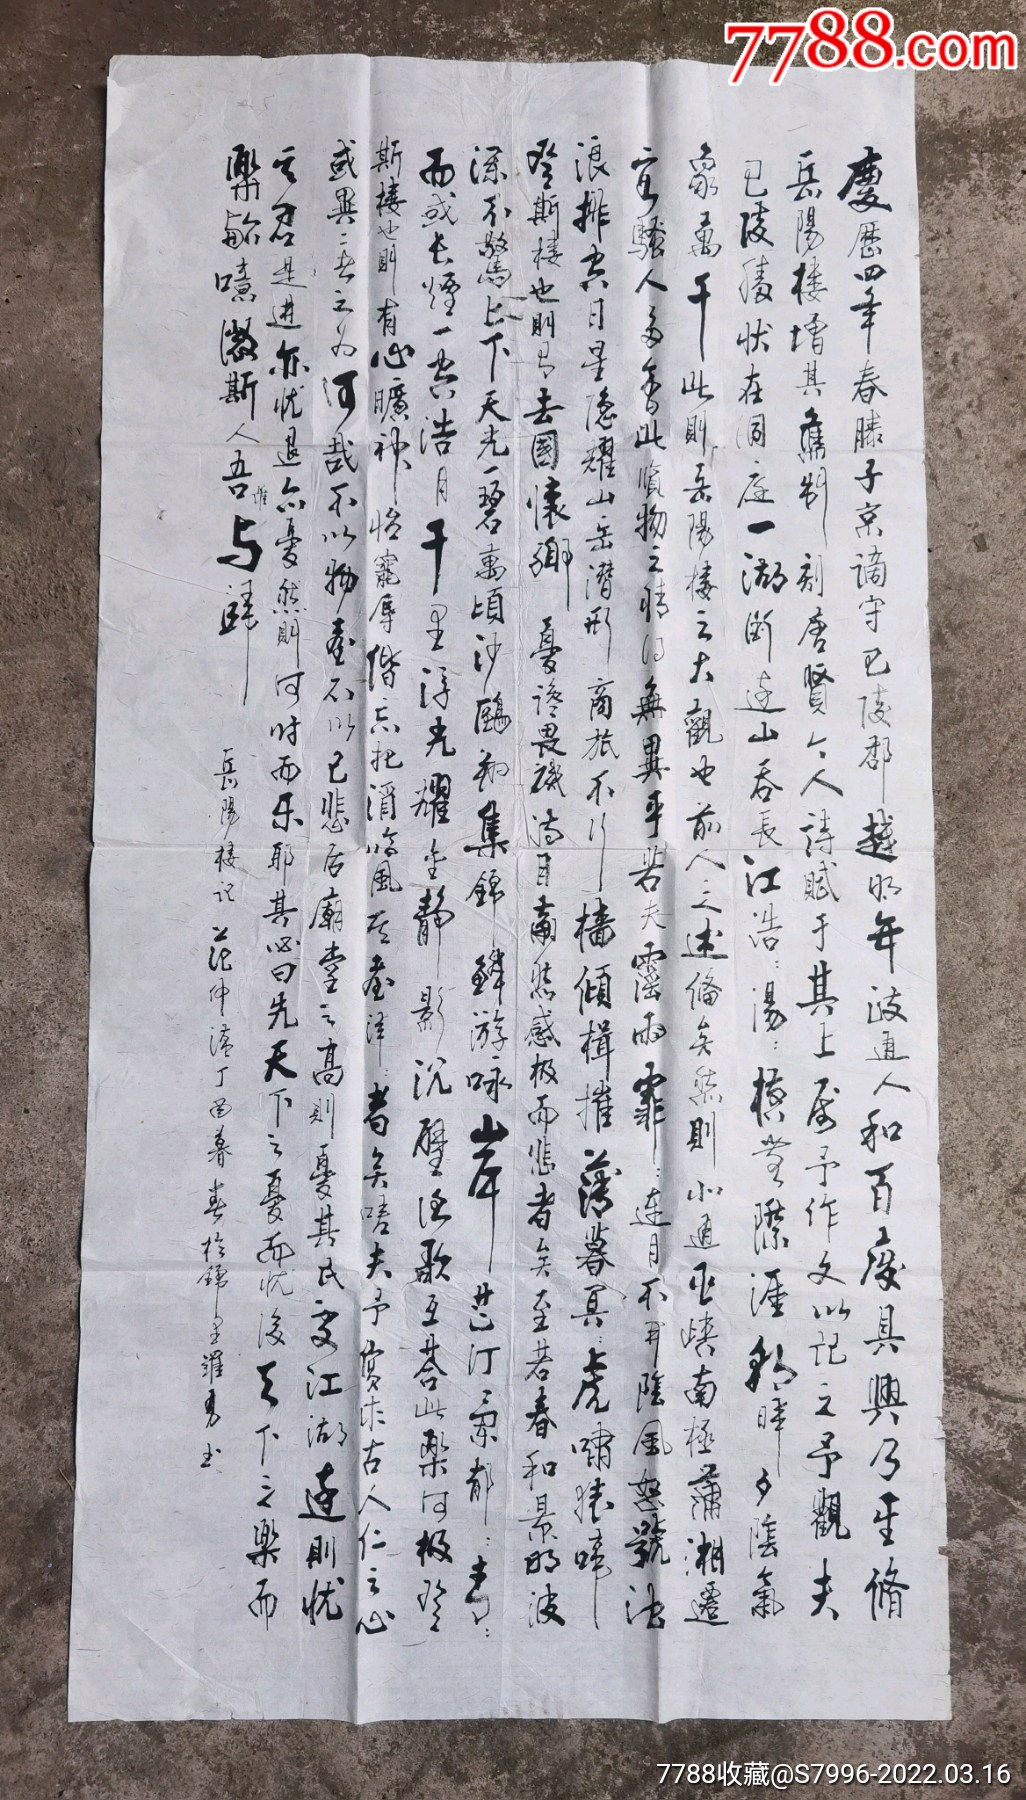 7788.com
慶歷四年春滕子京謫守巴陵郡越明年政通人和百廢具興乃重脩
岳陽樓增其舊制刻唐賢今人詩賦于其上屬予作文以記之予觀夫
巴陵勝狀在洞庭一湖銜遠山吞長江浩:湯:橫無際涯朝暉夕陰氣
象萬千此則岳陽樓之大觀也前人之述備矣然則北通巫峽南極瀟湘遷
客騷人多會此覽物之情得無異乎若夫霪雨霏:連月不開陰風怒號濁
浪排空日星隱耀山岳潛形商旅不行檣傾楫摧薄暮冥:虎嘯猿啼
登斯樓也則有去國懷鄉憂讒畏譏滿目蕭然感极而悲者矣至若春和景明波
瀾不驚上下天光一碧萬頃沙鷗翔集錦鱗游咏岸芷汀蘭郁:青:
而或长煙一空浩月千里浮光耀金靜影沉壁漁歌互荅此樂何极登
斯樓也則有心曠神怡寵辱偕忘把酒临風其喜洋:者矣嗟夫予嘗求古人仁之心
或異二者之为何哉不以物喜不以己悲居廟堂之高則憂其民處江湖遠則忧
之君是進亦忧退亦憂然則何时而乐耶其必曰先天下之憂而忧後天下之樂而
樂歟噫微斯人吾誰与歸
岳陽樓記 范仲淹丁酉暮春於錦里羅勇书
7788收藏@S7996-2022.03.16